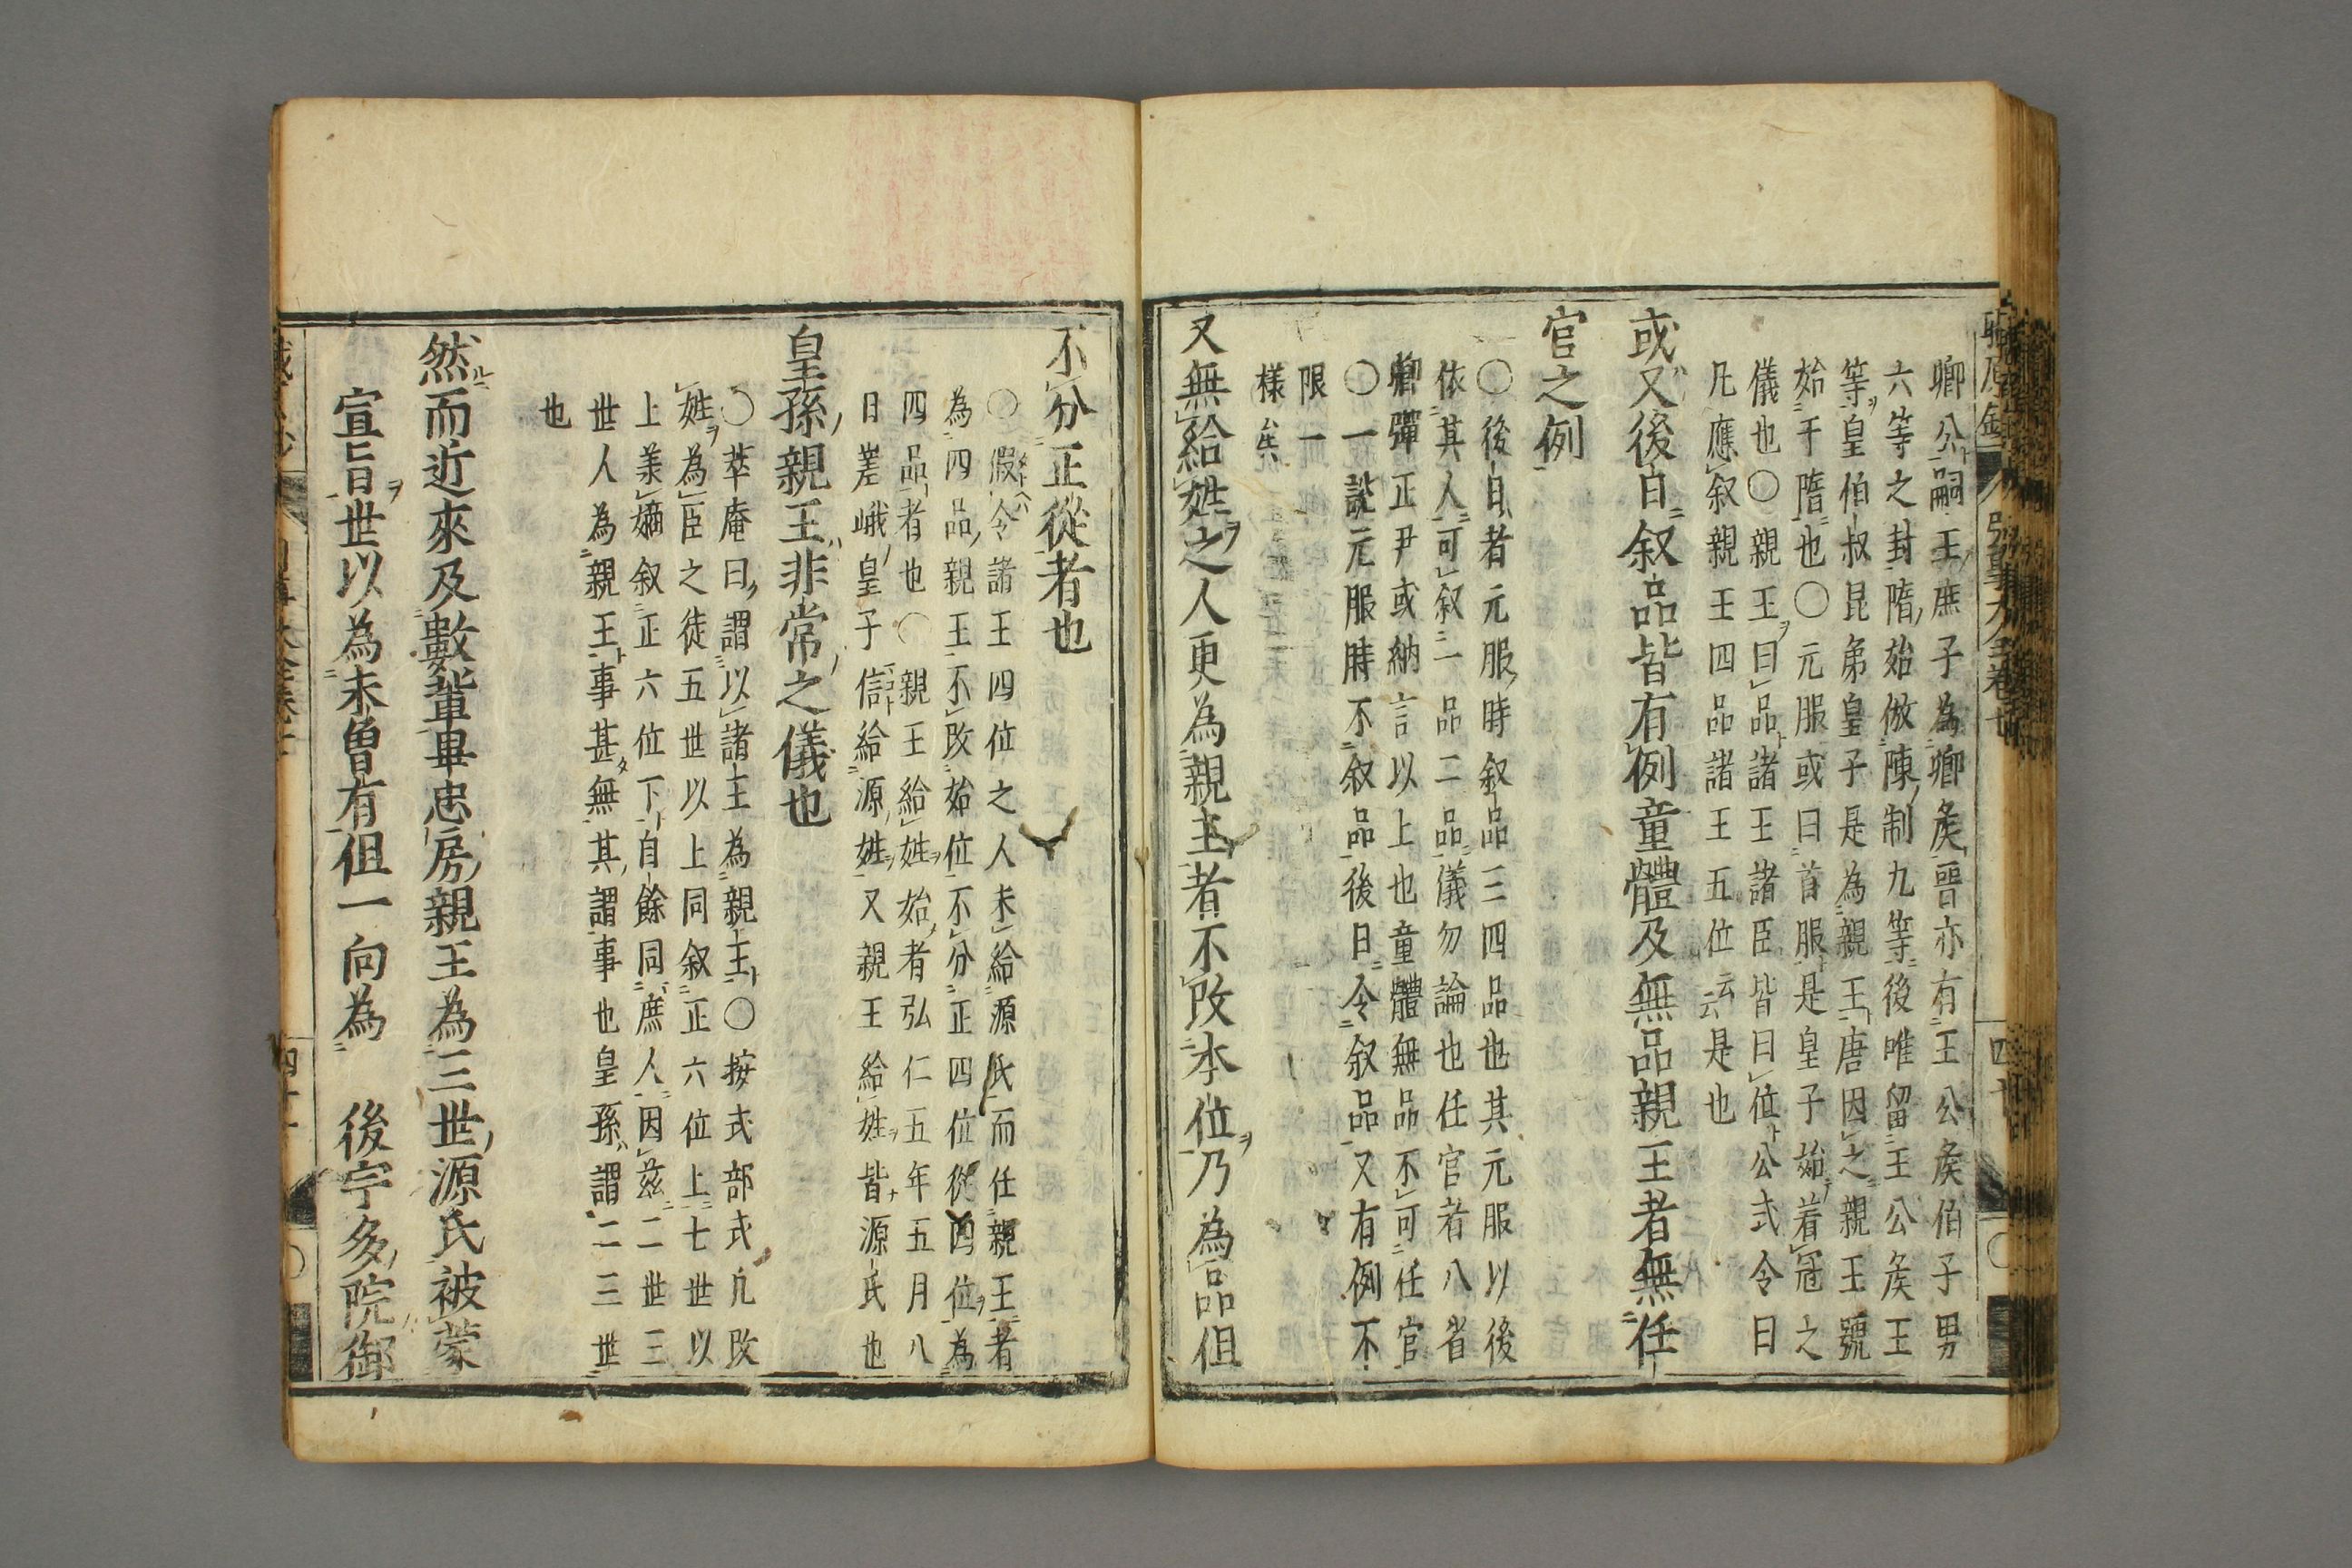 卿公嗣王庶子為卿矦晋亦有王公矦伯子男
六等之封隋始倣陳制九等後唯留王公矦王
等皇伯叔昆弟皇子是為親王唐因之親王號
始于隋也〇元服或曰首服是皇子始着冠之
儀也〇親王曰品諸王諸臣皆曰位公式令曰
凡應叙親王四品諸王五位云云是也
或又後日叙品皆有例童體及無品親王者無任
官之例
〇後日者元服時叙品三四品也其元服以後
依其人可叙一品二品儀勿論也任官者八省
卿彈正尹或納言以上也童體無品不可任官
〇一說元服時不叙品後日令叙品又有例不
限一
樣矣
又無給姓之人更為親王者不改本位乃為品但
不分正從者也
〇假令諸王四位之人未給源氏而任親王者
為四品親王不改始位不分正四位從四位為
四品者也〇親王給姓始者弘仁五年五月八
日嵳峨皇子信給源姓又親王給姓皆源氏也
皇孫親王非常之儀也
〇萃庵曰謂以諸王為親王〇按式部式凡改
姓為臣之徒五世以上同叙正六位上七世以
上羕嫡叙正六位下自餘同庶人因茲二世三
世人為親王事甚無其謂事也皇孫謂二三世
也
然而近來及數輩畢忠房親王為三世源氏被蒙
宣旨世以為未曾有但一向為　後宇多院御